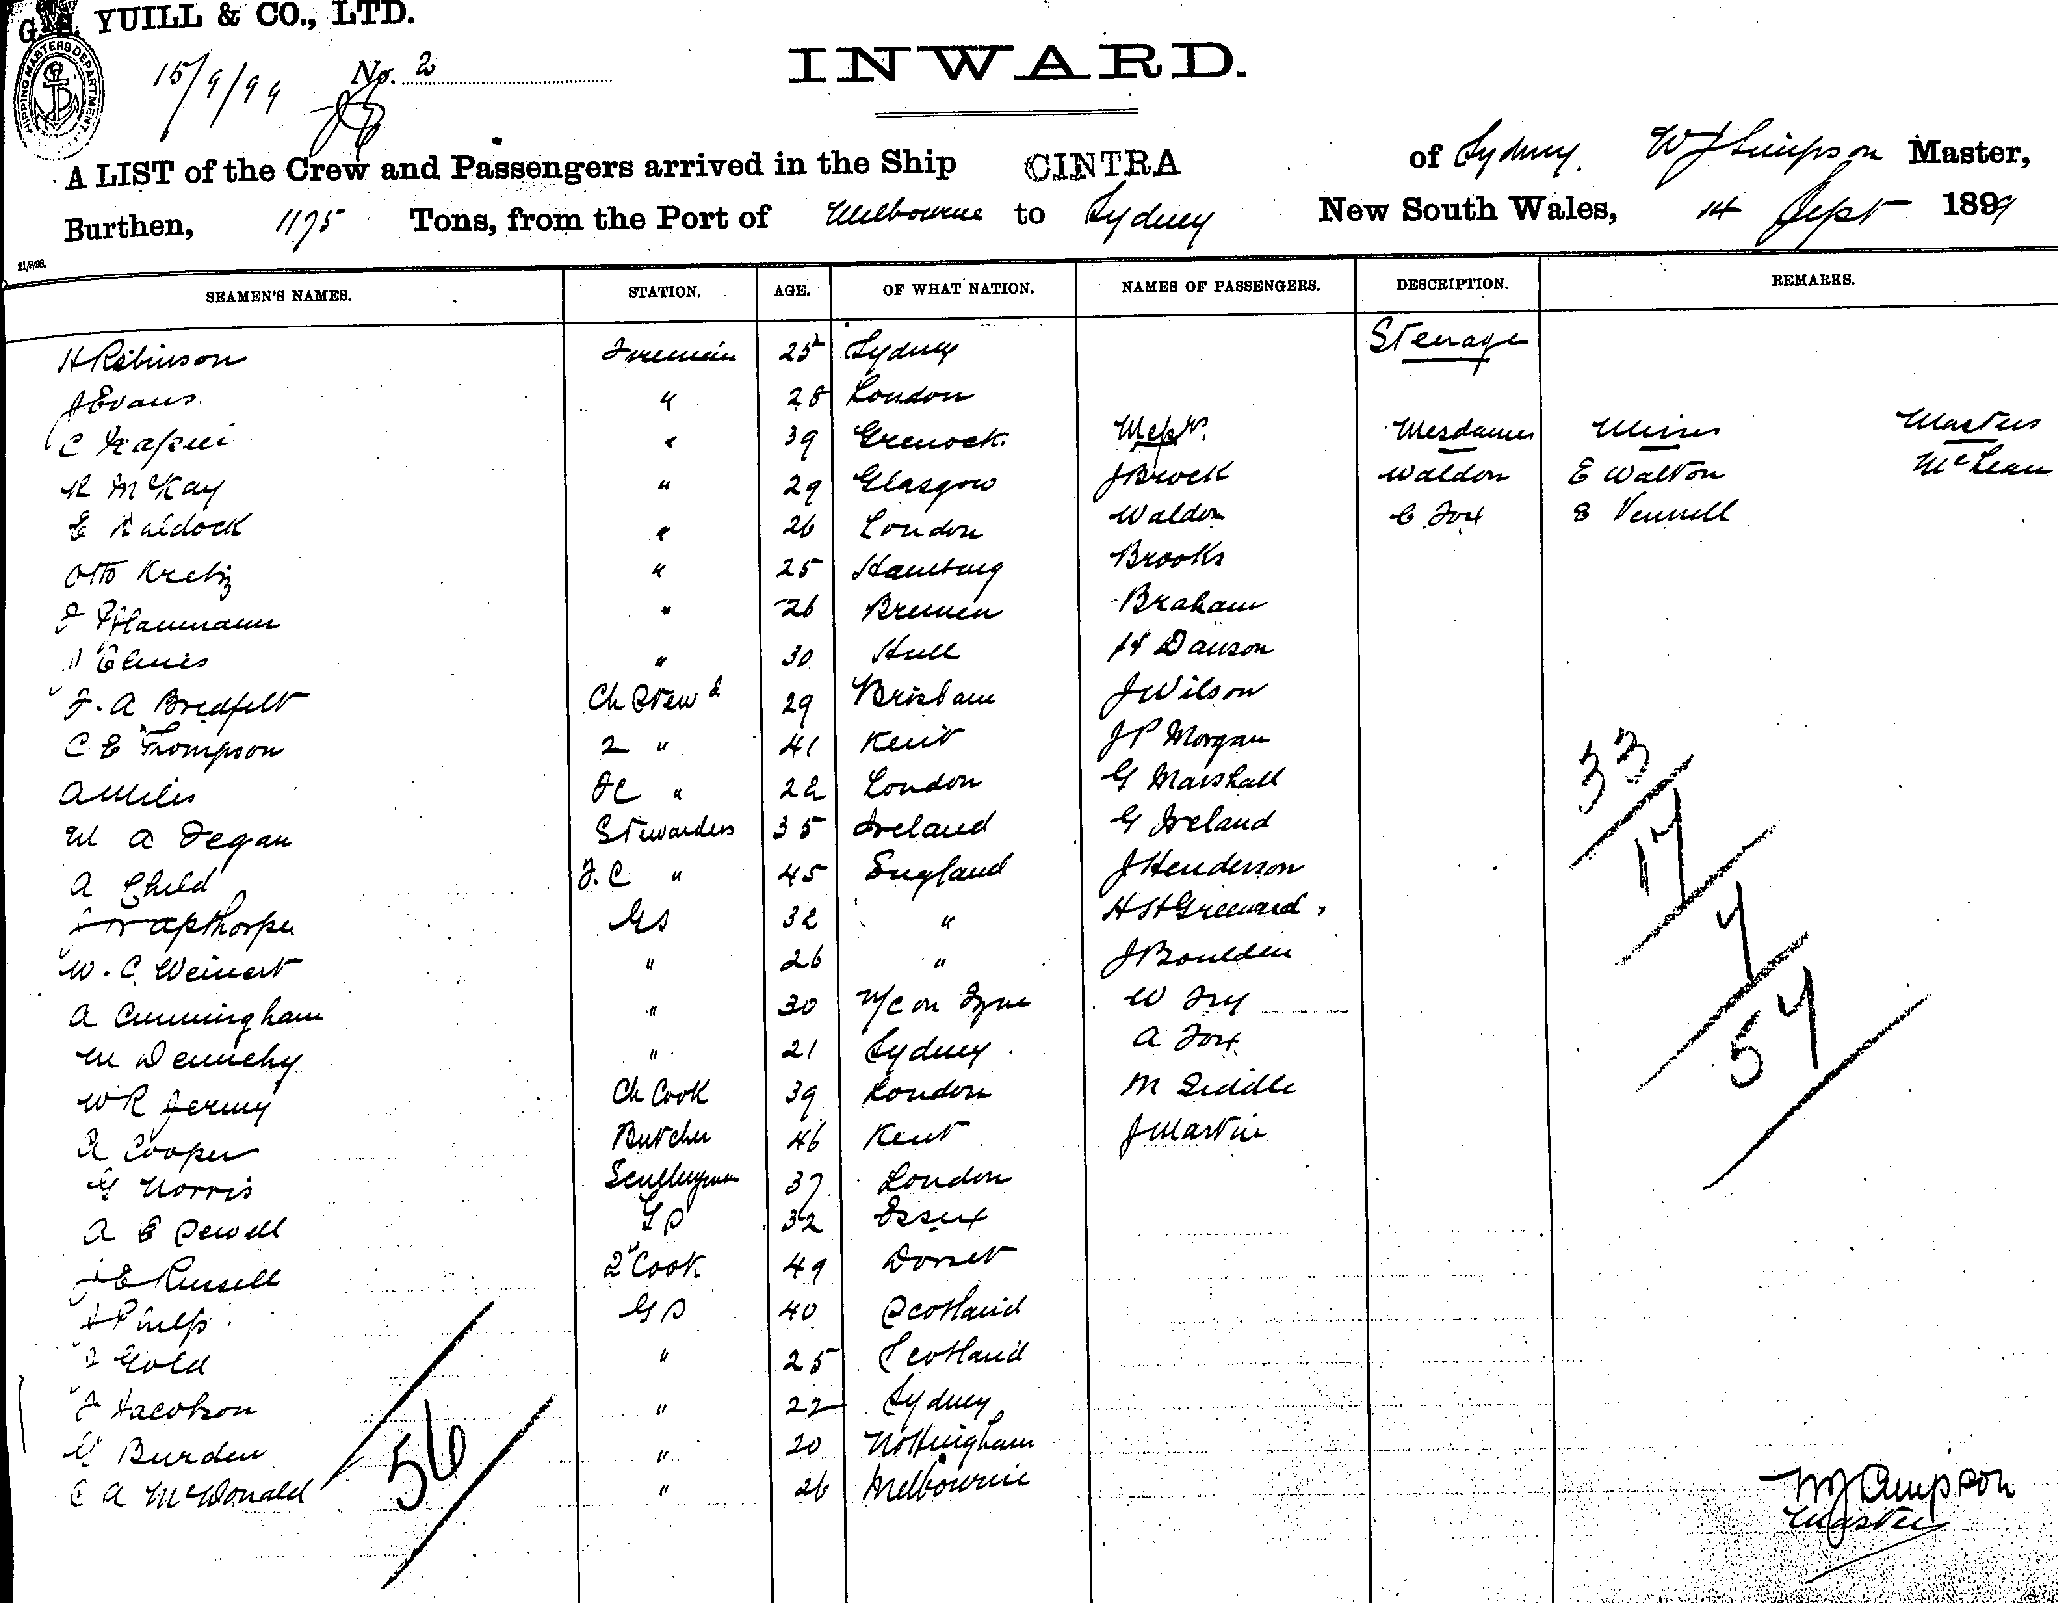 G. S. YUILL & CO., LTD.
15/9/99 No. 2
SHIPPING MASTERS DEPARTMENT
INWARD.
A LIST of the Crew and Passengers arrived in the Ship CINTRA of Sydney. W J Simpson Master,
Burthen, 1175 Tons, from the Port of Melbourne to Sydney New South Wales, 14 Sept 1899
SEAMEN'S NAMES. STATION. AGE. OF WHAT NATION. NAMES OF PASSENGERS. DESCRIPTION. REMARKS.
H Robinson Fireman 25 Sydney Steerage
J Evans " 28 London
C " 39 Grenock Messrs. Mesdames Misses Masters
R McKay " 29 Glasgow J Brock Waldon E Walton McLean
E Baldock " 26 London Waldon C Fox E Vennell
Otto " 25 Hamburg Brooks
" 26 Bremen Braham
" 30 Hull H Dawson
F. A Bredfelt Ch Stewd 29 Brisbane J Wilson
C E Thompson 2 " 41 Kent J P Morgan
A Miles FC " 22 London G Marshall
M A Fegan Stewardess 35 Ireland G Ireland
A Child F. C " 45 England J Henderson
Apthorpe GS 32 " H St
W. C. Weinert " 26 " J Boulden
A Cunningham " 30 N/C on Tyne W Fry
M Dennehy " 21 Sydney A Fox
W R Jermy Ch Cook 39 London M Siddle
R Cooper Butcher 46 Kent J Martin
G Norris Sculleryman 37 London
A E Sewell GS 32 Essex
J E Russell 2 Cook 49 Dorset
GS 40 Scotland
J Gold " 25 Scotland
J Jacobson " 22 Sydney
G Burden " 20 Nottingham
C A McDonald " 26 Melbourne
33
17
4
54
56
W J Simpson
Master